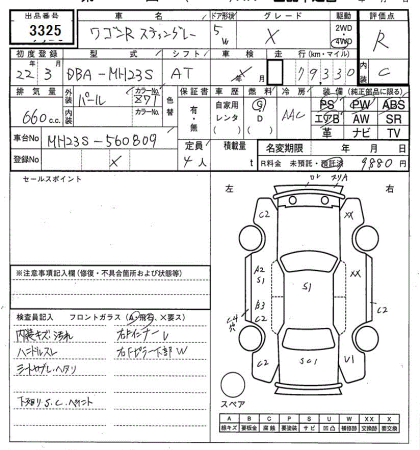 出品番号 車名 ドア形状 グレード 駆動 評価点
3325 ワゴンR スティングレー 5 W X 2WD ・ 4WD R
初度登録 型式 シフト 車検 走行(km・マイル) 内装
22年 3月 DBA-MH23S AT 79,330 C
排気量 外装 パール カラーNo. Z7T 色替 保証書 車歴 燃料 冷房 装備 (純正部品に限る)
660c.c. 内装 カラーNo. 有・無 自家用 レンタ G D AAC PS PW ABS
エアB AW SR
革 ナビ TV
車台No MH23S-560809 定員 積載量 名変期限 年 月 日
登録No X 4人 t R料金 未預託・預託済 9880円
セールスポイント
左 右
C2 XX
A2 S1 S1 XX
B3 C2 C2
C2 SC1 U1
スペア
※注意事項記入欄(修復・不具合箇所および状態等)
検査員記入 フロントガラス(A・飛石、X要ス)
内装キズ、汚れ 右Fインナーし
ハンドルスレ 右Fピラー下部W
シートスレ・ヘタリ
下廻りS.C.ペイント
A B C P S U W X XX
線キズ 要板金 腐蝕 要塗装 サビ 凹凸 補修跡 要交換 交換跡